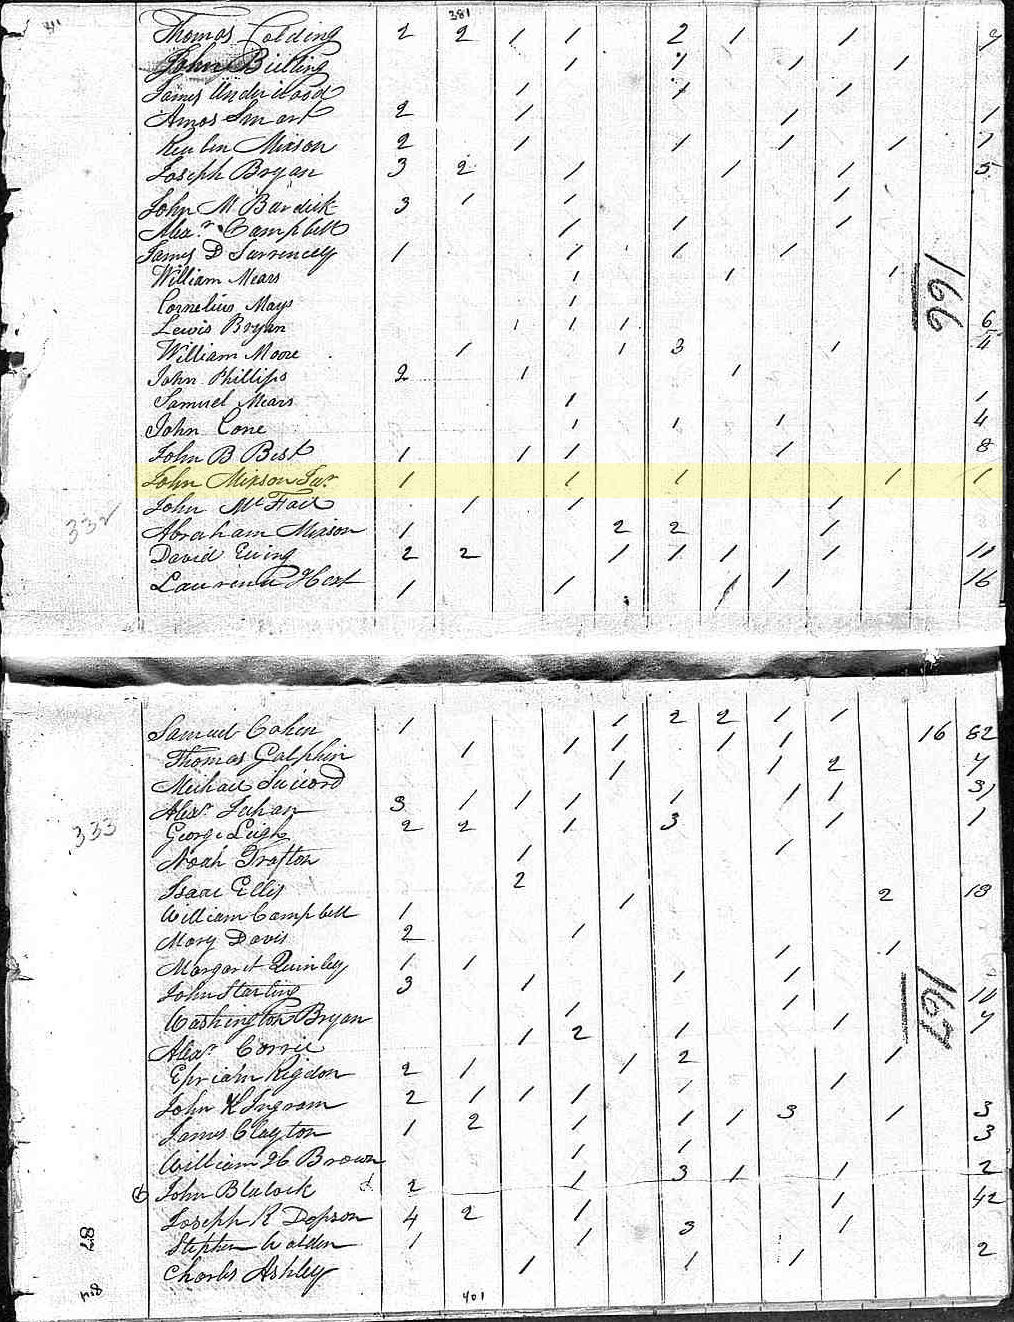 381
Thomas Colding 2 2 1 1 2 1 1 7
John Bilting 1 1 1 1
James Underwood 1 1 1
Amos Smart 2 1 1 1
Reubin Mixson 2 1 1 1 1 1
Joseph Bryan 3 2 1 1 1 5
John M Bardick 3 1 1 1
Alexr Campbell 1 1 1
James D Surrencey 1 1 1 1
William Mears 1 1 1
166
Cornelius Mays 1
Lewis Bryan 1 1 1 6
William Moore 1 1 3 1 4
John Phillips 2 1 1
Samuel Mears 1 1
John Cone 1 1 1 4
John B Best 1 1 1 1 8
John Mixson Jur 1 1 1 1 1
332 John McFail 1 1 1
Abraham Mixson 1 2 2 1
David Ewing 2 2 1 1 1 1 11
Laurence Hext 1 1 1 1 16
Samuel Cohen 1 1 2 2 1 1 16 82
Thomas Galphin 1 1 1 1 1 7
Michael 1 1 2 31
Alexr 3 1 1 1 1 1 1
333 George Leigh 2 2 1 3 1 1
Noah Grafton 1 1
Isaac Ellis 2 2 18
William Campbell 1 1
Mary Davis 2 1
Margaret Quinley 1 1 1 1
John Starling 3 1 1 1
167
Washington Bryan 1 1 7
Alexr Corrie 1 2 1 1
Ephriam Rigdon 2 1 1 2 1
John K Ingram 2 1 1 1 1 1
James Clayton 1 2 1 1 1 3 1 3
William H Brown 1 1 3
John Blalock 2 1 3 1 1 2
Joseph R Dopson 4 2 1 3 1 42
Stephen Walden 1 1 1
Charles Ashley 1 1 1 2
87
401